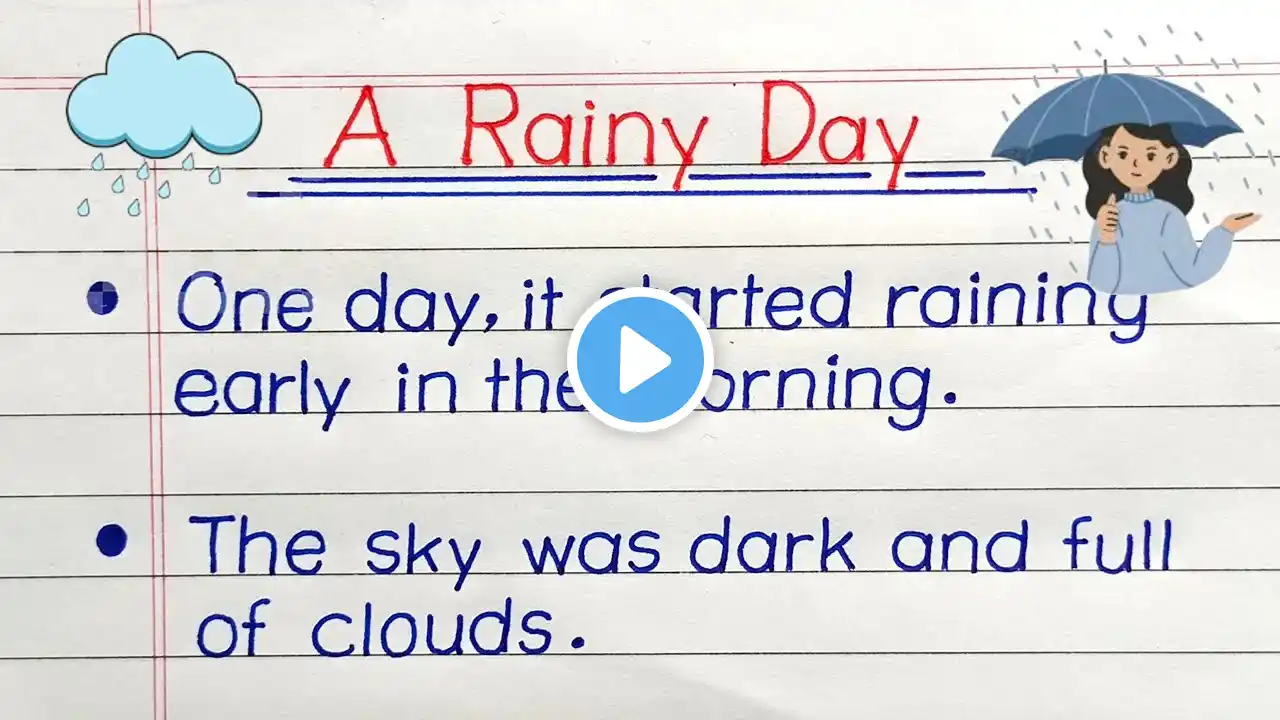 A Rainy Day
One day, it started raining
early in the morning.
The sky was dark and full
of clouds.